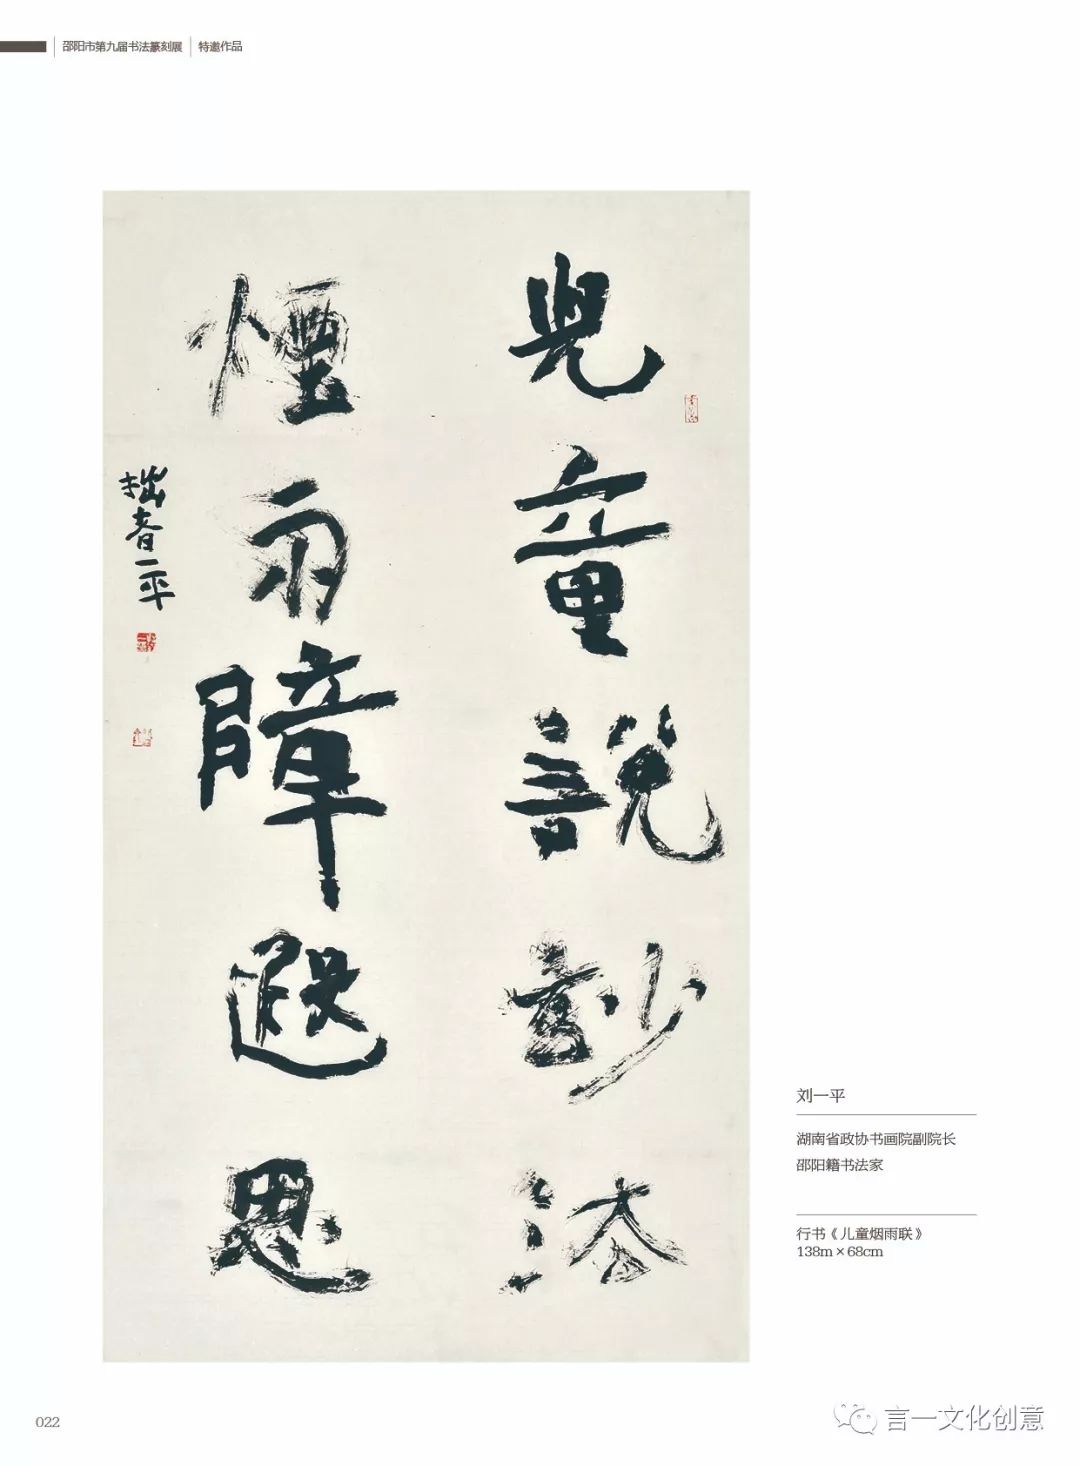 邵阳市第九届书法篆刻展 特邀作品
兒童說妙法
煙雨障遐思
拙者一平
刘一平
湖南省政协书画院副院长
邵阳籍书法家
行书《儿童烟雨联》
138m×68cm
022
言一文化创意